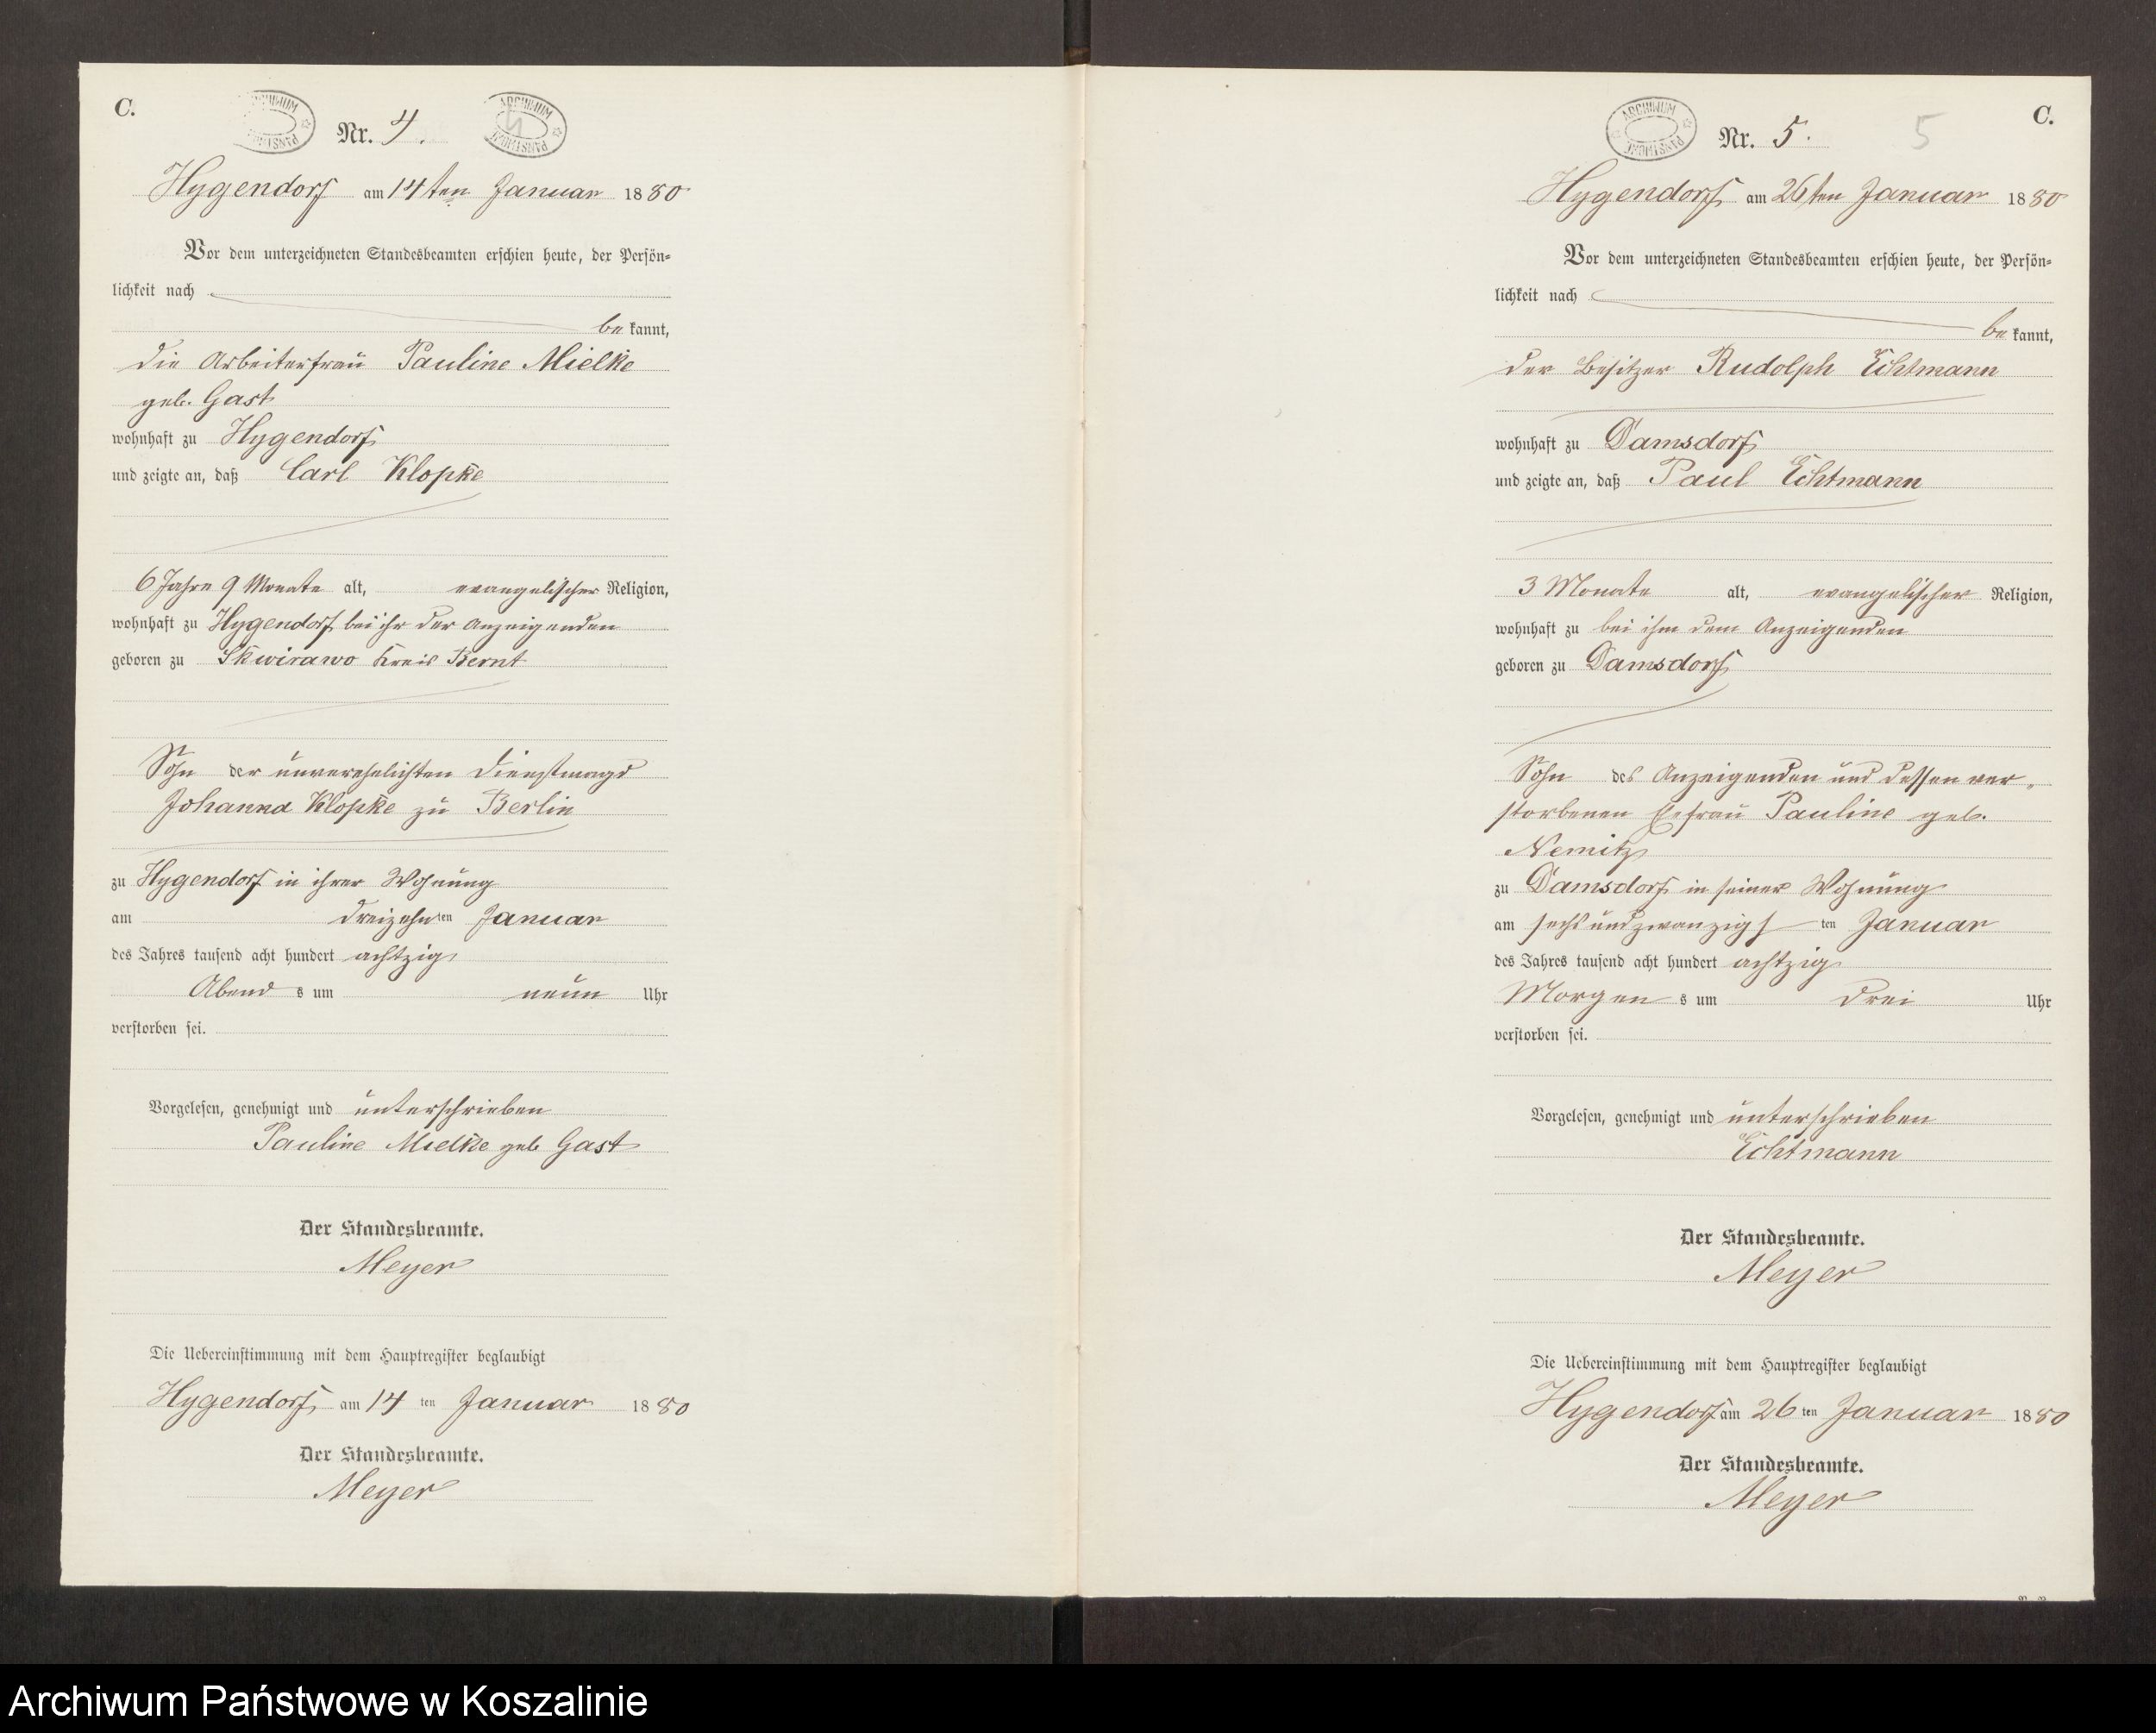 C.
ARCHIWUM PAŃSTWOWE
Nr. 4.
ARCHIWUM PAŃSTWOWE
4
Hygendorf am 14ten Januar 1880
Vor dem unterzeichneten Standesbeamten erschien heute, der Persön=
lichkeit nach
be kannt,
die Arbeiterfrau Pauline Mielke
geb. Gast
wohnhaft zu Hygendorf
und zeigte an, daß Carl Klopke
6 Jahre 9 Monate alt, evangelischer Religion,
wohnhaft zu Hygendorf bei ihr der Anzeigenden
geboren zu Skwirawo Kreis Bernt
Sohn der unverehelichten Dienstmagd
Johanna Klopke zu Berlin
zu Hygendorf in ihrer Wohnung
am dreizehnten Januar
des Jahres tausend acht hundert achtzig
Abend s um neun Uhr
verstorben sei.
Vorgelesen, genehmigt und unterschrieben
Pauline Mielke geb Gast
Der Standesbeamte.
Meyer
Die Uebereinstimmung mit dem Hauptregister beglaubigt
Hygendorf am 14 ten Januar 1880
Der Standesbeamte.
Meyer
C.
ARCHIWUM PAŃSTWOWE
Nr. 5.
5
Hygendorf am 26ten Januar 1880
Vor dem unterzeichneten Standesbeamten erschien heute, der Persön=
lichkeit nach
be kannt,
der Besitzer Rudolph Echtmann
wohnhaft zu Damsdorf
und zeigte an, daß Paul Echtmann
3 Monate alt, evangelischer Religion,
wohnhaft zu bei ihm dem Anzeigenden
geboren zu Damsdorf
Sohn des Anzeigenden und dessen ver„
storbenen Ehefrau Pauline geb.
Nemitz
zu Damsdorf in seiner Wohnung
am sechsundzwanzigs ten Januar
des Jahres tausend acht hundert achtzig
Morgen s um drei Uhr
verstorben sei.
Vorgelesen, genehmigt und unterschrieben
Echtmann
Der Standesbeamte.
Meyer
Die Uebereinstimmung mit dem Hauptregister beglaubigt
Hygendorf am 26 ten Januar 1880
Der Standesbeamte.
Meyer
Archiwum Państwowe w Koszalinie